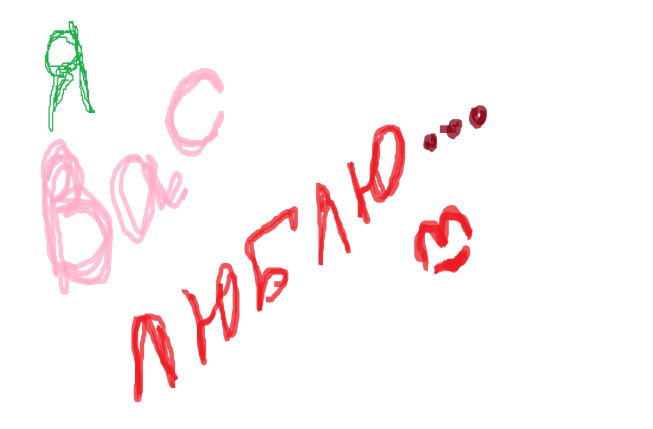 Я
Вас
ЛЮБЛЮ...